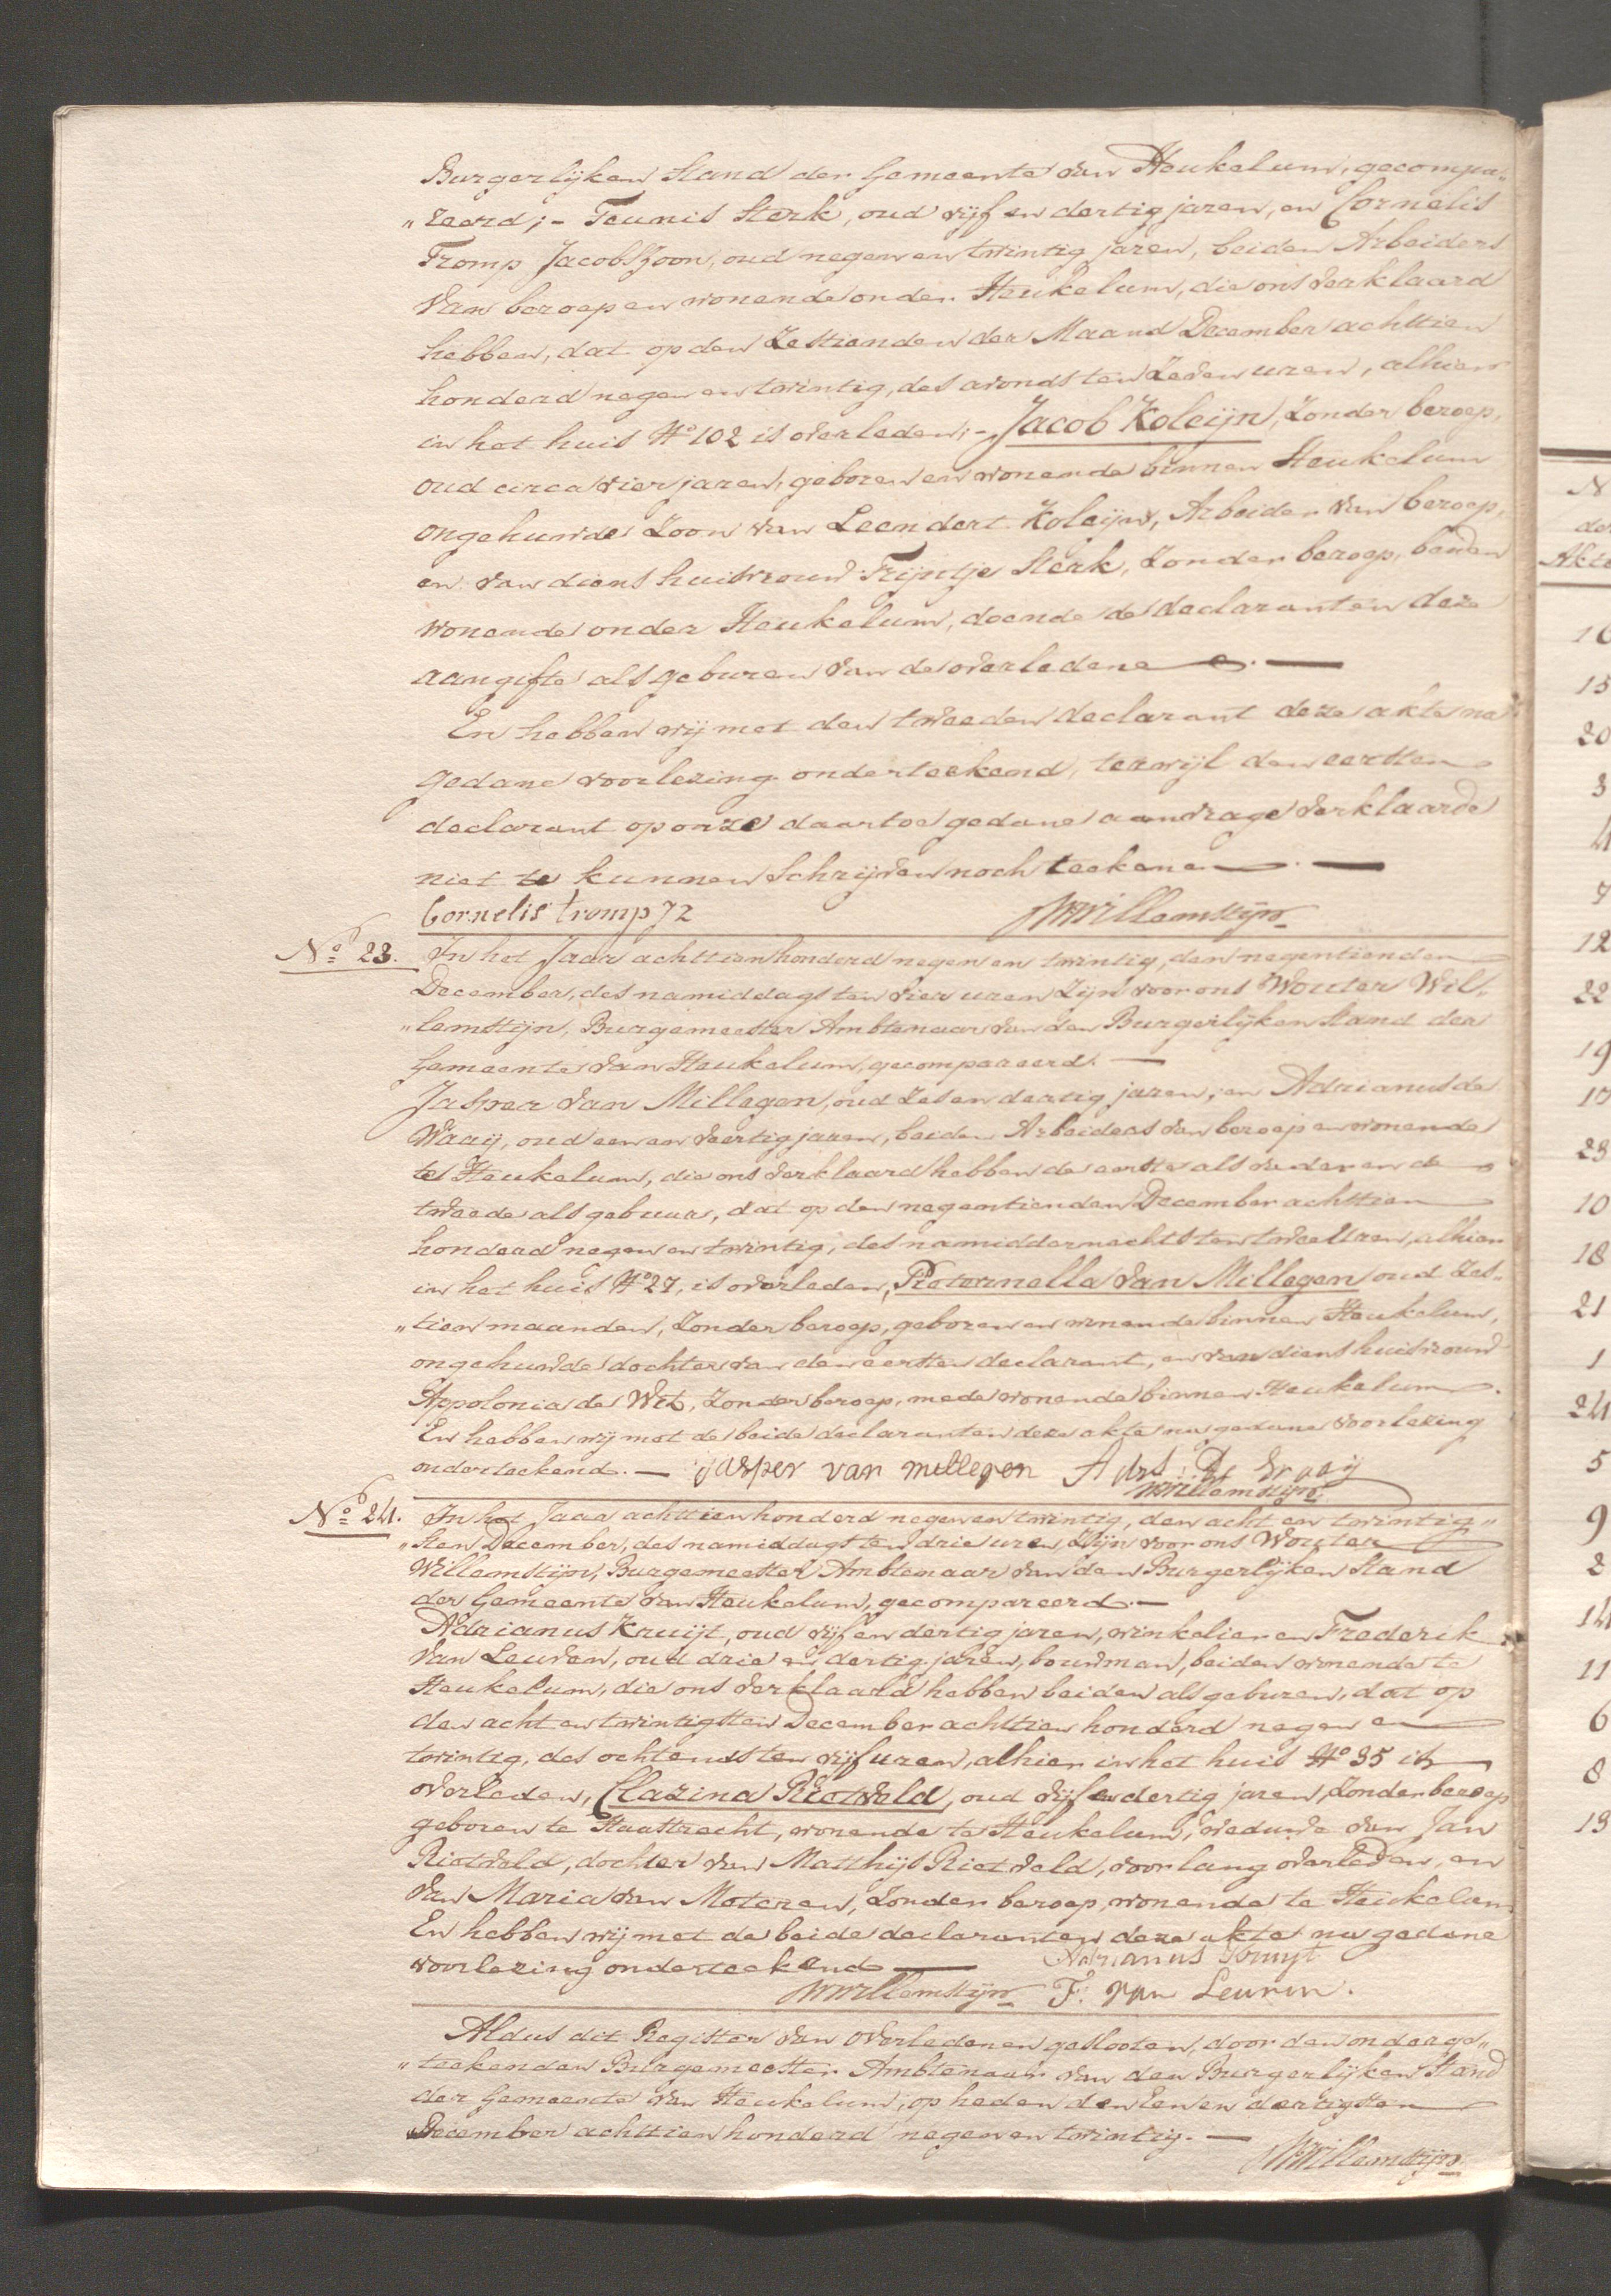 Burgerlijken Stand der Gemeente van Heukelum, gecompa„
„reerd; - Teunis Sterk, oud vijf en dertig jaren, en Cornelis
Tromp Jacobszoon, oud negen en twintig jaren, beiden Arbeiders
van beroep en wonende onder Heukelum, die ons verklaard
hebben, dat op den Zestienden der Maand December achttien
honderd negen en twintig, des avonds ten Zeven uren, alhier
in het huis No 102 is overleden; - Jacob Koleijn, Zonder beroep,
oud circa vier jaren, geboren en wonende binnen Heukelum
ongehuwde Zoon van Leendert Koleijn, Arbeider van beroep,
en van diens huisvrouw Trijntje Sterk, Zonder beroep, beiden
wonende onder Heukelum, doende de declaranten deze
aangifte als geburen van de overledene. —
En hebben wij met den tweeden declarant deze akte na
gedane voorlezing onderteekend, terwijl den eersten
declarant op onze daartoe gedane aanvrage verklaarde
niet te kunnen Schrijven noch teekenen. —
Cornelis tromp Jz WWillemstijn
No 23. In het Jaar achttienhonderd negen en twintig, den negentienden
December, des namiddags ten vier uren Zijn voor ons Wouter Wil„
„lemstijn, Burgemeester Ambtenaar van den Burgerlijken Stand der
Gemeente van Heukelum, gecompareerd. —
Jasper van Millegen, oud Zes en dertig jaren, en Adrianus de
Waaij, oud een en veertig jaren, beiden Arbeiders van beroep en wonende
te Heukelum, die ons verklaard hebben de eerste als vader en de
tweede als gebuur, dat op den negentienden December achttien
honderd negen en twintig, des namiddernachts ten twee uren, alhier
in het huis No 27, is overleden, Pieternella van Millegen oud Zes„
„tien maanden, Zonder beroep, geboren en wonende binnen Heukelum,
ongehuwde dochter van den eersten declarant, en van diens huisvrouw
Appolonia de Wit, Zonder beroep, mede wonende binnen Heukelum.
En hebben wij met de beide declaranten deze akte na gedane voorlezing
onderteekend. — jasper van mellegen Adrs De Waaij
WWillemstijn
No 24. In het Jaar achttienhonderd negen en twintig, den acht en twintig„
„sten December, des namiddags ten drie uren Zijn voor ons Wouter
Willemstijn, Burgemeester Ambtenaar van den Burgerlijken Stand
der Gemeente van Heukelum, gecompareerd. —
Adrianus Kruijt, oud vijf en dertig jaren, winkelier en Frederik
van Leuven, oud drie en dertig jaren, bouwman, beiden wonende te
Heukelum, die ons verklaard hebben beiden als geburen, dat op
den acht en twintigsten December achttien honderd negen en
twintig, des ochtends ten vijf uren, alhier in het huis No 35 is
overleden, Clazina Rietveld, oud vijf en dertig jaren, Zonder beroep
geboren te Haastrecht, wonende te Heukelum, weduwe van Jan
Rietveld, dochter van Matthijs Rietveld, voor lang overleden, en
van Maria van Moteren, Zonder beroep, wonende te Heukelum
En hebben wij met de beide declaranten deze akte na gedane
voorlezing onderteekend — Adrianus Kruijt
WWillemstijn F. van Leuven.
Aldus dit Register van Overledenen geslooten, door den onderge„
„teekenden Burgemeester Ambtenaar van den Burgerlijken Stand
der Gemeente van Heukelum, op heden den Een en dertigsten
December achttien honderd negen en twintig. —
WWillemstijn
N
de
Akte
16
15
20
3
4
7
12
22
19
17
23
10
18
21
1
24
5
9
2
14
11
6
8
13